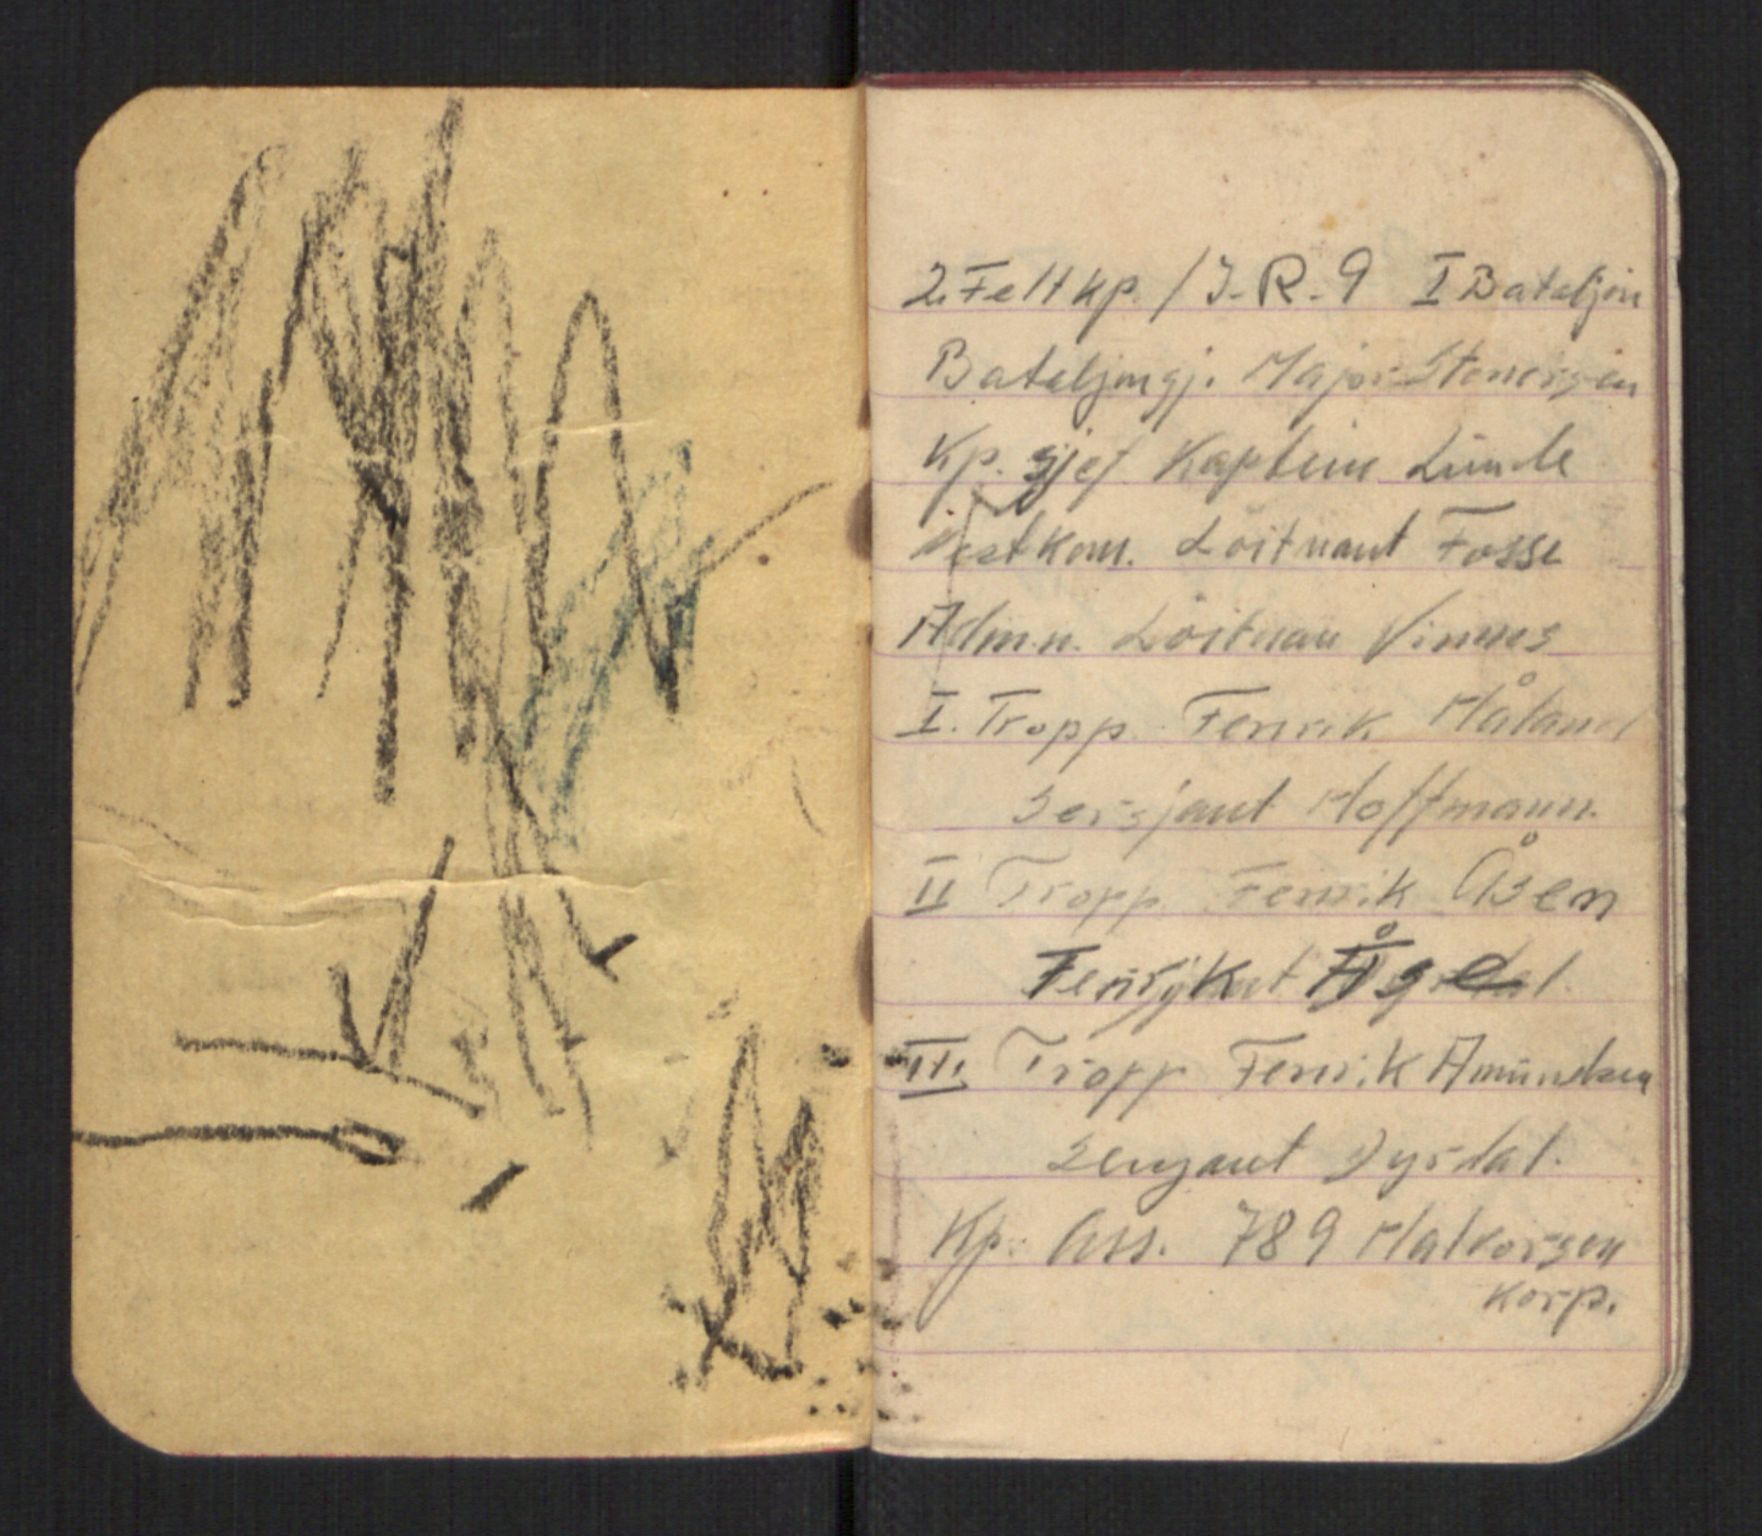 2. Feltkp. / I.R. 9 I Bataljon
Bataljonsj. Major Stenersen
Kp. sjef Kaptein Lunde
Nestkom. Löitnant Fosse
Adm.n. Löitnan Vinnes
I. Tropp. Fenrik Måland
Sersjant Hoffmann.
II Tropp Fenrik Åsen
III. Tropp Fenrik Amundsen
Sersjant Dyrdal.
Kp. Ass. 789
Korp.